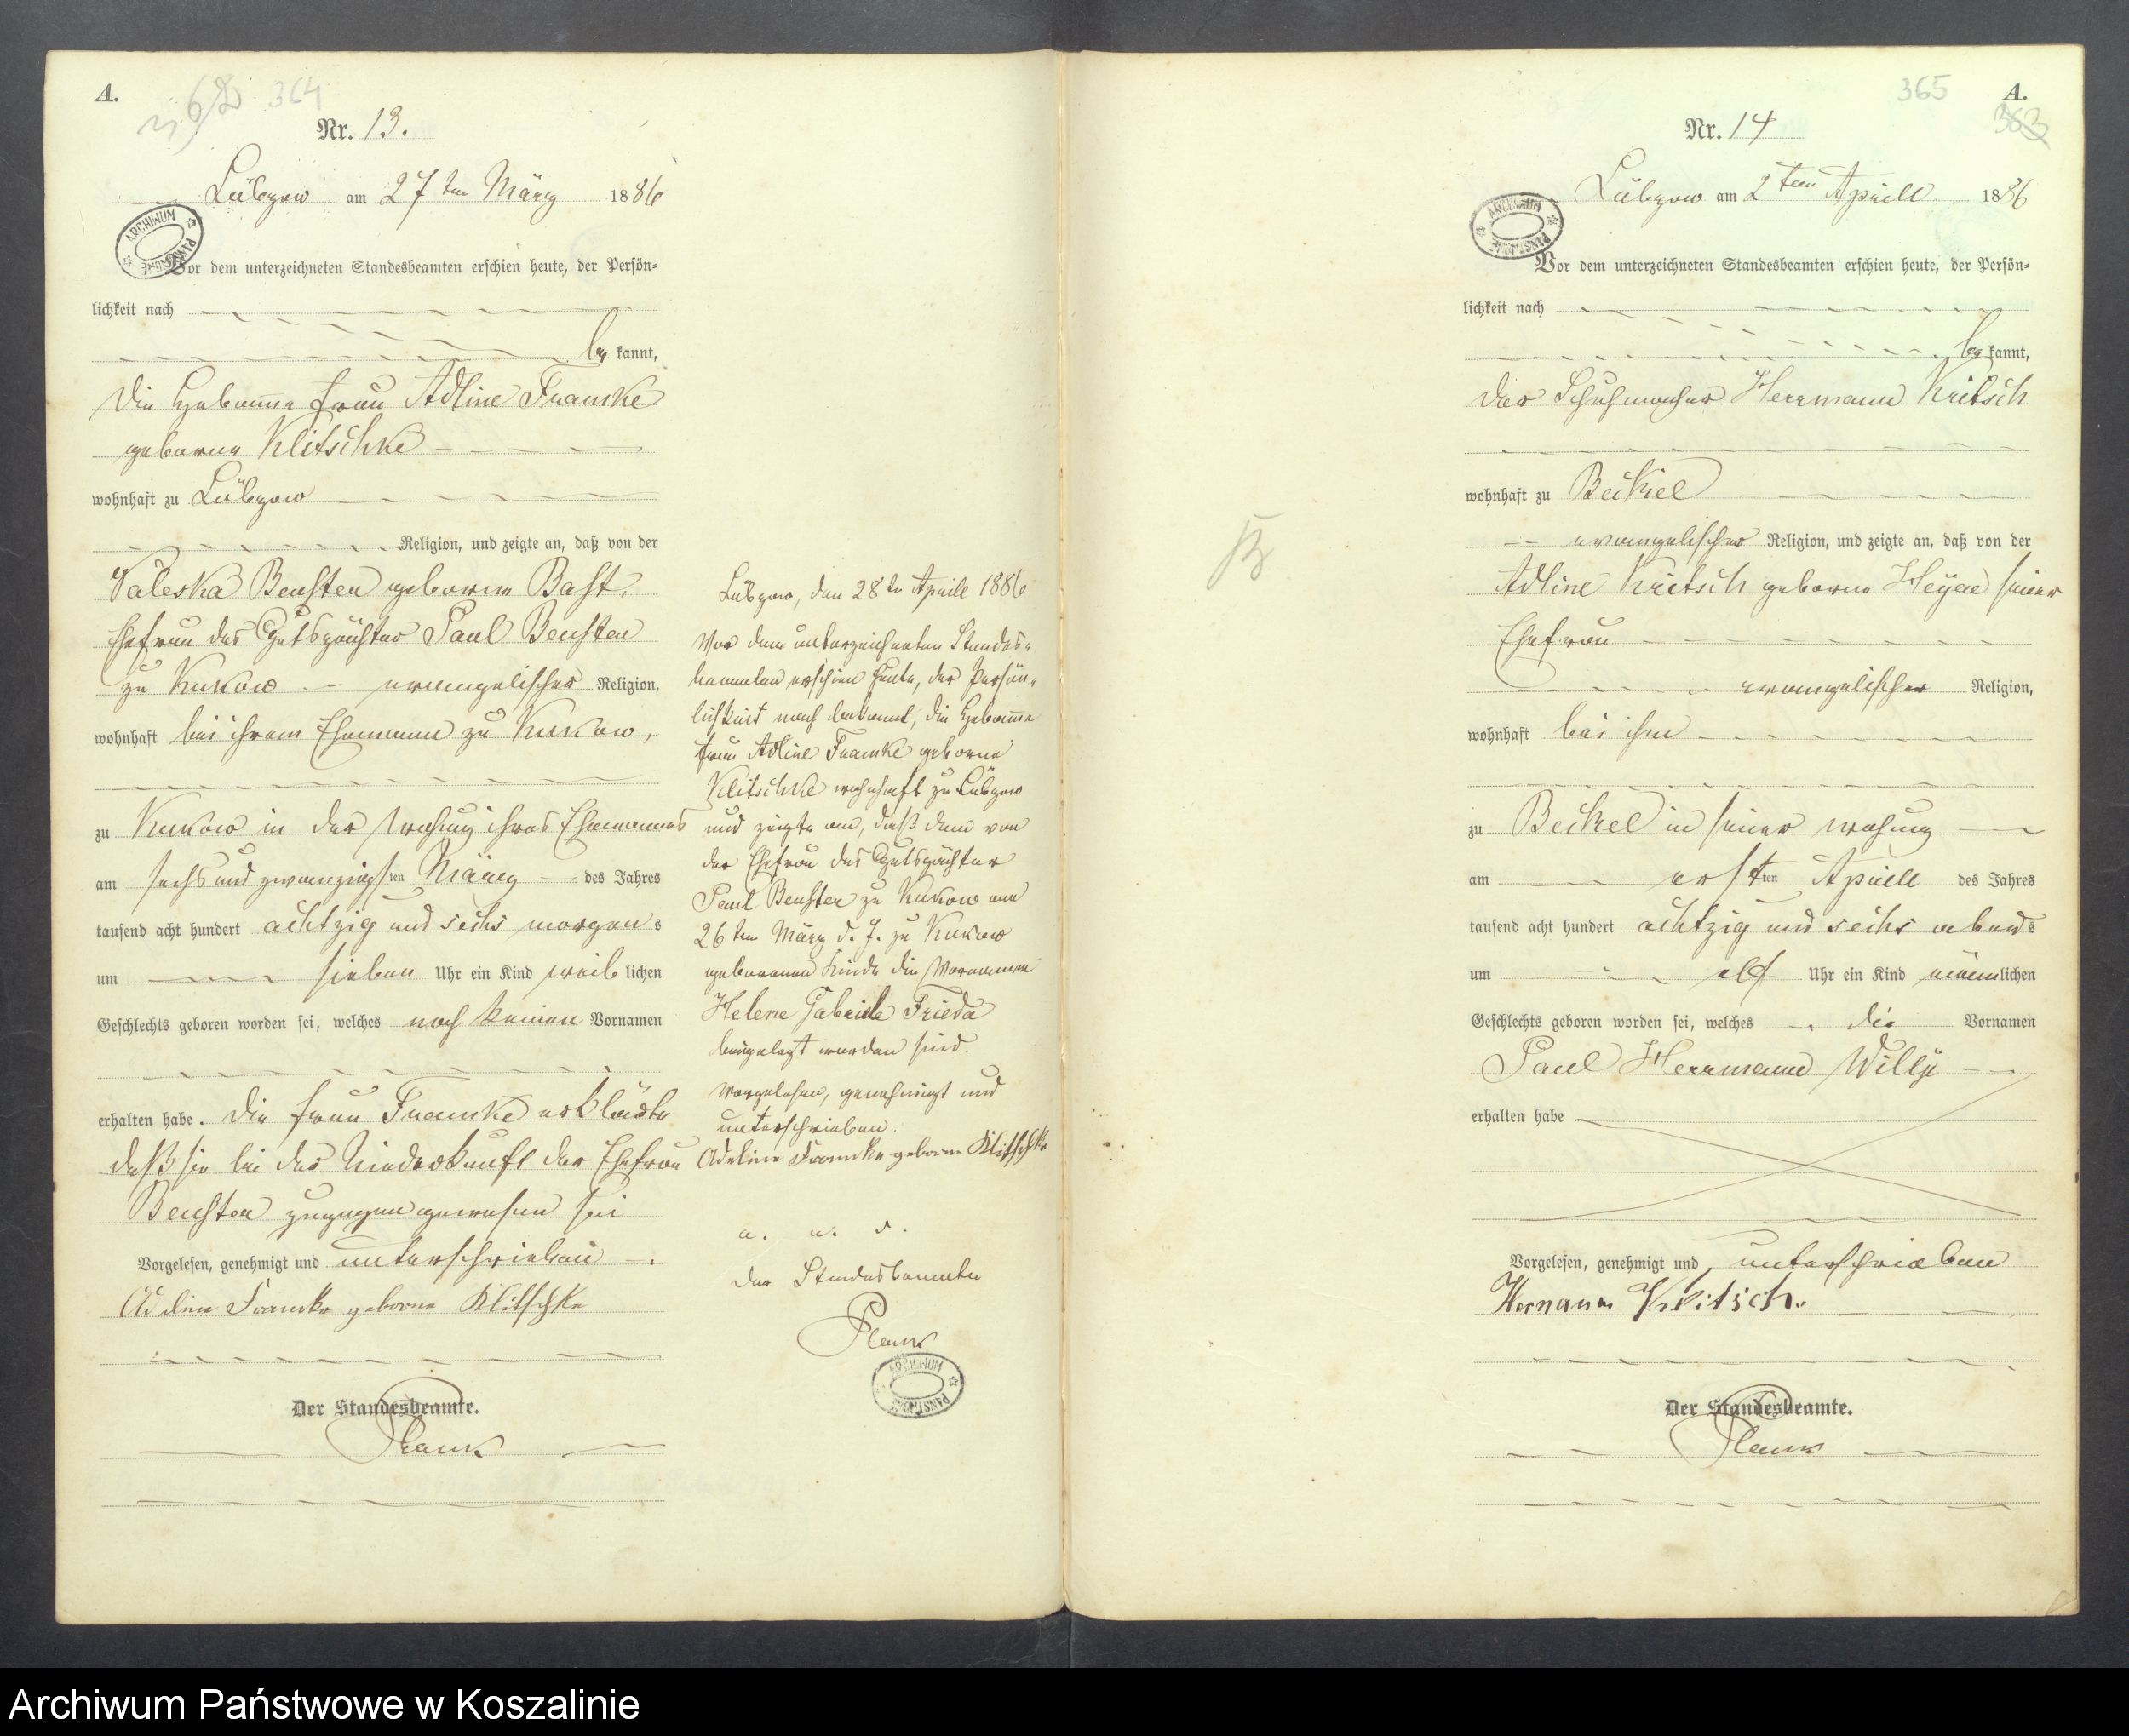 A.
364
Nr. 13.
Lübzow am 27ten März 1886
ARCHIWUM PAŃSTWOWE
Vor dem unterzeichneten Standesbeamten erschien heute, der Persön=
lichkeit nach
be kannt,
die Hebamme Frau Adline Framke
geborne Klitschke
wohnhaft zu Lübzow
Religion, und zeigte an, daß von der
Valeska Beuster geborne Bast,
Ehefrau des Gutspächter Paul Beuster
zu Kukow evangelischer Religion,
wohnhaft bei ihrem Ehemann zu Kukow,
zu Kukow in der Wohung ihres Ehemannes
am sechs und zwanzigsten März des Jahres
tausend acht hundert achtzig und sechs morgens
um sieben Uhr ein Kind weiblichen
Geschlechts geboren worden sei, welches noch keinen Vornamen
erhalten habe. Die Frau Framke erklärte
daß sie bei der Niederkunft der Ehefrau
Beuster zugegen gewesen sei
Vorgelesen, genehmigt und unterschrieben
Adeline Framke geborne Klitschke
Der Standesbeamte.
Plank
Lübzow, den 28ten Aprill 1886
Vor dem unterzeichneten Standes=
beamten erschien heute, der Persön=
lichkeit nach bekannt, die Hebamme
Frau Adline Framke geborne
Klitschke wohnhaft zu Lübzow
und zeigte an, daß dem von
der Ehefrau des Gutspächter
Paul Beuster zu Kukow am
26ten März d. J. zu Kukow
geborenen Kinde die Vornamen
Helene Gabriele Frieda
beigelegt worden sind.
Vorgelesen, genehmigt und
unterschrieben.
Adeline Framke geborne Klitschke
a. u. s.
Der Standesbeamte
Plank
ARCHIWUM PAŃSTWOWE
365
A.
363
Nr. 14
Lübzow am 2ten Aprill 1886
ARCHIWUM PAŃSTWOWE
Vor dem unterzeichneten Standesbeamten erschien heute, der Persön=
lichkeit nach
be kannt,
der Schuhmacher Herrmann Kritsch
wohnhaft zu Beckel
evangelischer Religion, und zeigte an, daß von der
Adline Kritsch geborne Heyer seiner
Ehefrau
evangelischer Religion,
wohnhaft bei ihm
zu Beckel in seiner Wohung
am ersten Aprill des Jahres
tausend acht hundert achtzig und sechs abends
um elf Uhr ein Kind männlichen
Geschlechts geboren worden sei, welches die Vornamen
Paul Herrmann Willy
erhalten habe
Vorgelesen, genehmigt und unterschrieben
Hermann Kritsch.
Der Standesbeamte.
Plank
Archiwum Państwowe w Koszalinie